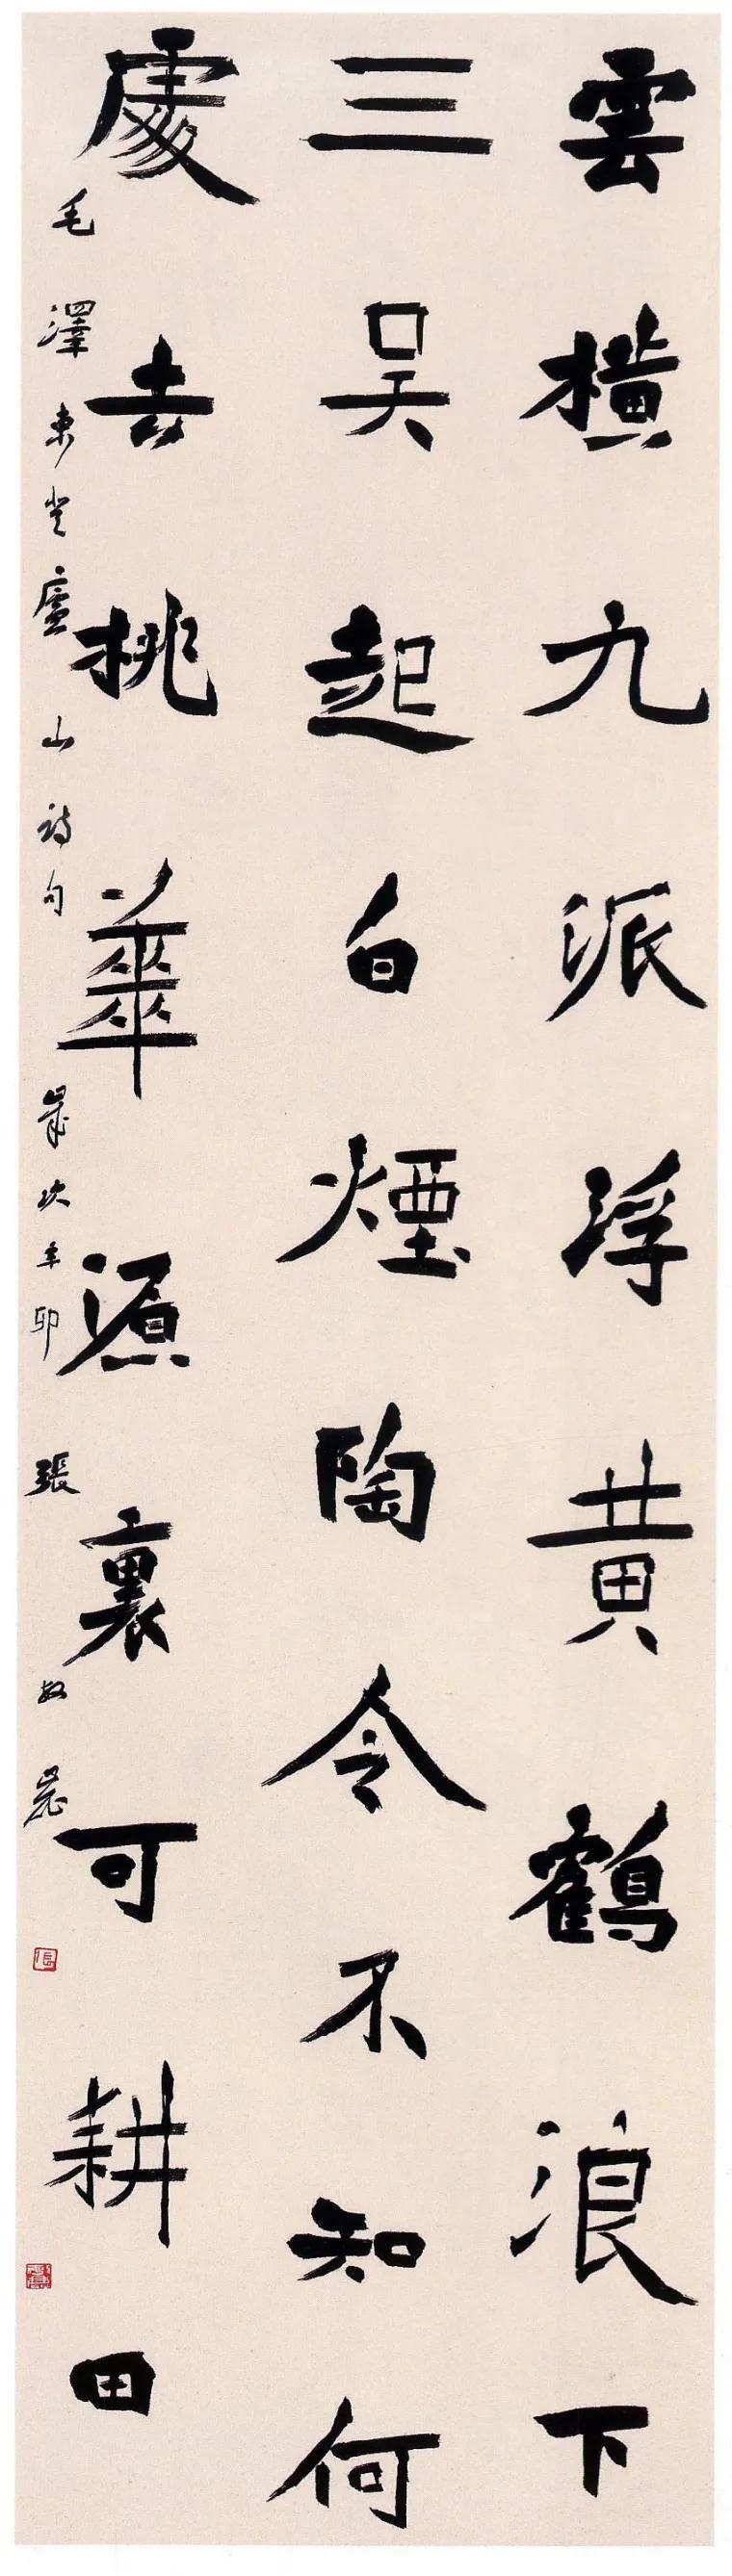 雲横九派浮黄鶴浪下
三吴起白煙陶令不知何
處去桃華源裏可耕田
毛澤東登廬山詩句 歲次辛卯 張敏
張